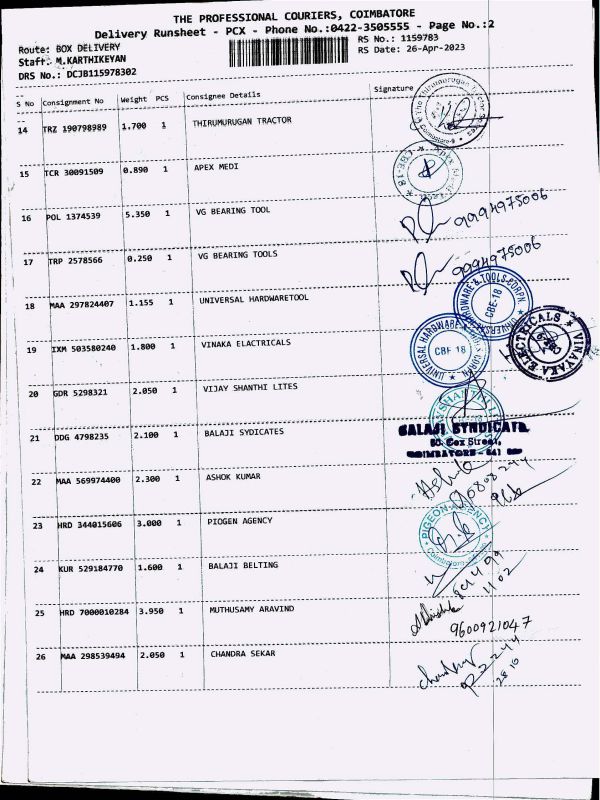 THE PROFESSIONAL COURIERS, COIMBATORE
Delivery Runsheet - PCX - Phone No.:0422-3505555 - Page No.:2
Route: BOX DELIVERY
RS No.: 1159783
Staff: M.KARTHIKEYAN
RS Date: 26-Apr-2023
DRS No.: DCJB115978302
S No Consignment No Weight PCS Consignee Details Signature
14 TRZ 190798989 1.700 1 THIRUMURUGAN TRACTOR
15 TCR 30091509 0.890 1 APEX MEDI
16 POL 1374539 5.350 1 VG BEARING TOOL
9994975006
17 TRP 2578566 0.250 1 VG BEARING TOOLS
9994975006
18 MAA 297824407 1.155 1 UNIVERSAL HARDWARETOOL
UNIVERSAL HARDWARE & TOOLS CORPN.
CBE-18
19 IXM 503580240 1.800 1 VINAKA ELACTRICALS
UNIVERSAL HARDWARE & TOOLS CORPN.
CBE 18
VINAYAKA ELECTRICALS
20 GDR 5298321 2.050 1 VIJAY SHANTHI LITES
21 DDG 4798235 2.100 1 BALAJI SYDICATES
BALAJI SYNDICATE
Cox Street,
COIMBATORE - 641
22 MAA 569974400 2.300 1 ASHOK KUMAR
23 HRD 344015606 3.000 1 PIOGEN AGENCY
PIGEON AGENCY
24 KUR 529184770 1.600 1 BALAJI BELTING
25 HRD 7000010284 3.950 1 MUTHUSAMY ARAVIND
9600921047
26 MAA 298539494 2.050 1 CHANDRA SEKAR